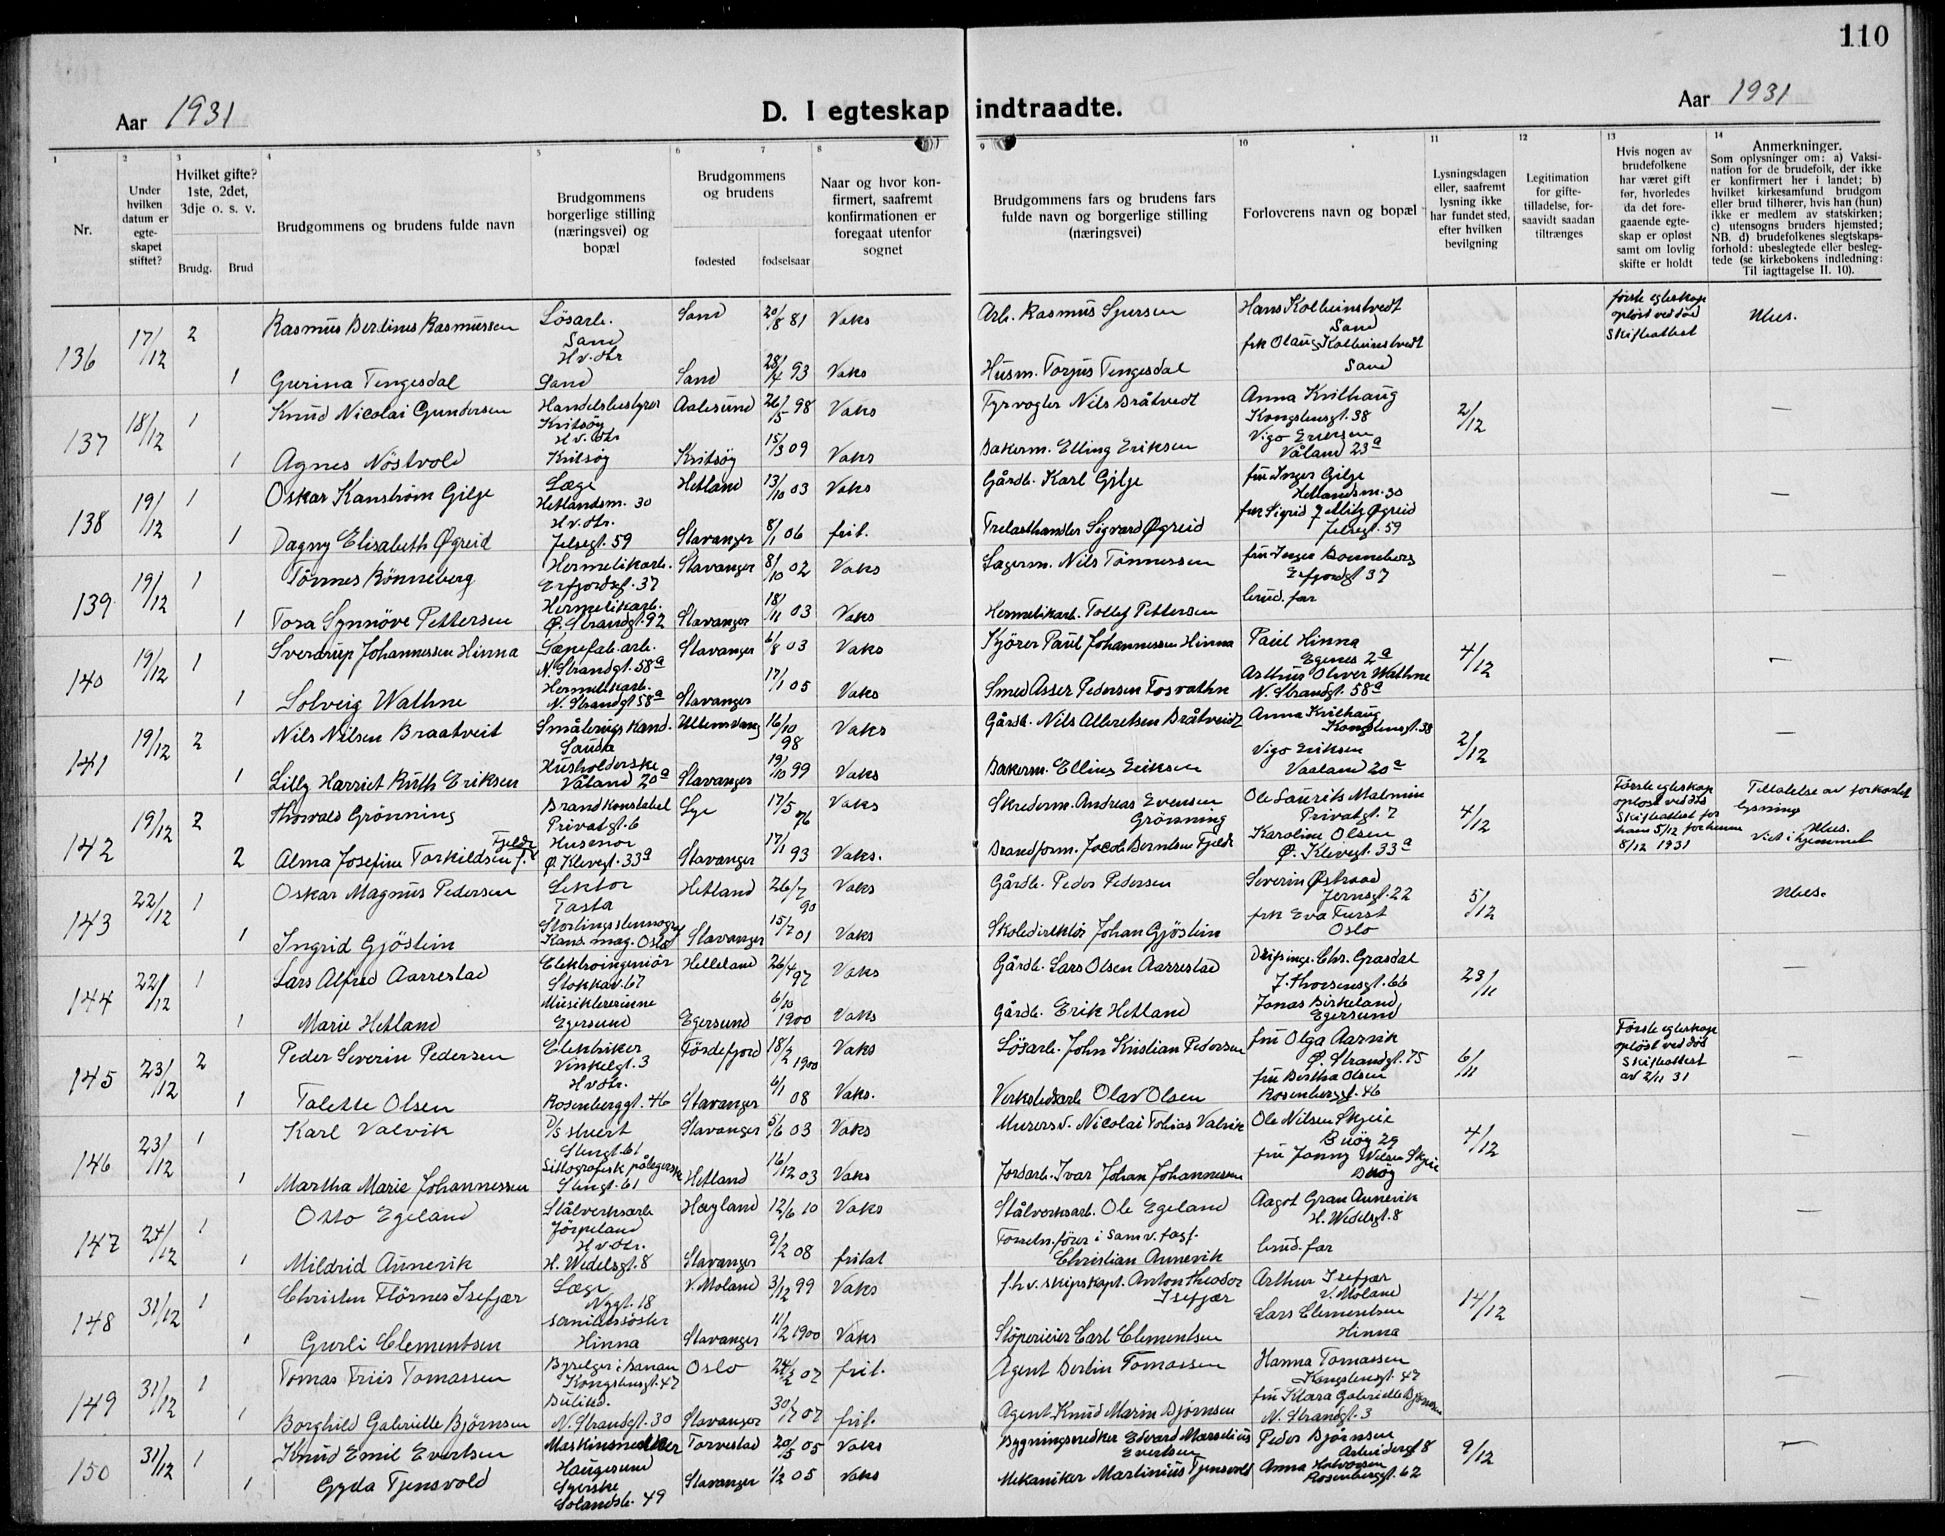 110
Aar 1931
D. I egteskap indtraadte.
Aar 1931
1
2
3
4
5
6
7
8
9
10
11
12
13
14
Nr.
Under hvilken datum er egte-skapet stiftet?
Hvilket gifte? 1ste, 2det, 3dje o. s. v.
Brudg.
Brud
Brudgommens og brudens fulde navn
Brudgommens borgerlige stilling (næringsvei) og bopæl
Brudgommens og brudens
fødested
fødselsaar
Naar og hvor kon-firmert, saafremt konfirmationen er foregaat utenfor sognet
Brudgommens fars og brudens fars fulde navn og borgerlige stilling (næringsvei)
Forloverens navn og bopæl
Lysningsdagen eller, saafremt lysning ikke har fundet sted, efter hvilken bevilgning
Legitimation for gifte-tilladelse, for-saavidt saadan tiltrænges
Hvis nogen av brudefolkene har været gift før, hvorledes da det fore-gaaende egte-skap er opløst samt om lovlig skifte er holdt
Anmerkninger.
Som oplysninger om: a) Vaksi-nation for de brudefolk, der ikke er konfirmert her i landet; b) hvilket kirkesamfund brudgom eller brud tilhører, hvis han (hun) ikke er medlem av statskirken; c) utensogns bruders hjemsted; NB. d) brudefolkenes slegtskaps-forhold: ubeslegtede eller besleg-tede (se kirkebokens indledning: Til iagttagelse II. 10).
136 17/12 2 Rasmus Berdines Rasmussen Løsarb. Sand H.v.otr Sand 20/8 81 Vaks Arb. Rasmus Sjursen Hans Kolbeinstvedt Sand første egteskap opløst ved død Skifteattest Ubes.
1 Gurina Tengesdal Sand Sand 28/4 93 Vaks Husm. Torjus Tengesdal frk Olaug Kolbeinstvedt Sand
137 18/12 1 Knud Nicolai Gundersen Handelsbestyrer Kvitsøy H.v.otr Aalesund 26/5 98 Vaks Fyrvogter Nils Bråtvedt Anna Kvilhaug Kongsteinsgt. 38 2/12 —
1 Agnes Nöstvold Kvitsøy Kvitsøy 15/3 09 Vaks Bakerm. Elling Eriksen Vigo Eriksen Våland 23a
138 19/12 1 Oskar Kanstrøm Gilje Læge Hetlandsm. 30 H.v.otr. Hetland 13/10 03 Vaks Gårdb. Karl Gilje fru Inger Gilje Hetlandsm. 30 —
1 Dagny Elisabeth Øgreid Jelsegt. 59 Stavanger 8/1 06 frit. Trelasthandler Sigvard Øgreid frk Sigrid Øgreid Jelsegt. 59
139 19/12 1 Tönnes Rönneberg Hermetikarb. Erfjordgt. 37 Stavanger 8/10 02 Vaks Lagerm. Nils Tönnessen fru Inger Rönneberg Erfjordgt 37 —
1 Tora Synnöve Pettersen Hermetikarb. Ø. Strandgt. 92 Stavanger 18/11 03 Vaks Hermetikarb. Tollef Pettersen brud. far
140 19/12 1 Sverdrup Johannessen Hinna Sæpefab. arb. N. Strandgt. 58a Stavanger 6/8 03 Vaks Kjörer Paul Johannessen Hinna Paul Hinna Egenes 2a 4/12 —
1 Solveig Wathne Hermetikarb. N. Strandgt 58a Stavanger 17/1 05 Vaks Smed Asser Pedersen Fosvathn Arthur Oliver Wathne N. Strandgt. 58a
141 19/12 2 Nils Nilsen Braatveit Smålerugskand. Sauda Ullensvang 16/10 98 Vaks Gårdb. Nils Albretsen Bråtveidt Anna Kvilhaug Kongsteinsgt. 38 2/12 —
1 Lilly Harriet Ruth Eriksen Husholderske Våland 20a Stavanger 19/10 99 Vaks Bakerm. Elling Eriksen Vigo Eriksen Vaaland 20a
142 19/12 2 Thorvald Grönning Brandkonstabel Privatgt. 6 Lye 17/5 76 Vaks Skrederm. Andreas Evensen Grönning Ole Laurits Malmin Privatgt. 7 4/12 Første egteskap opløst ved død Skifteattest for ham 5/12 for henne 8/12 1931 Tillatelse av forkortet lysning Ubes. Viet i hjemmet
2 Alma Josefine Torkildsen f. Fjelde Husmor Ø. Klevegt. 33a Stavanger 17/1 93 Vaks. Brandform. Jacob Berntsen Fjelde Karoline Olsen Ø. Klevegt. 33a
143 22/12 1 Oskar Magnus Pedersen Lektor Tasta Hetland 26/7 90 Vaks Gårdb. Peder Pedersen Severin Østraad Jernsgt. 22 5/12 Ubes.
1 Ingrid Gjöstein Stortingsstenograf Kand. mag. Oslo Stavanger 15/7 01 Vaks Skoledirektör Johan Gjöstein frk Eva Furst Oslo
144 22/12 1 Lars Alfred Aarrestad Elektroingeniör Stokkav. 67 Helleland 26/4 97 Vaks Gårdb. Lars Olsen Aarrestad Driftsing. Chr. Grasdal J. Thorsensgt. 66 23/11 —
1 Marie Hetland Musiklererinne Egersund Egersund 6/10 1900 Vaks Gårdb. Erik Hetland Jonas Birkeland, Egersund
145 23/12 2 Peder Severin Pedersen Elektriker Vinkelgt. 3 H.v.otr. Fördefjord 18/2 1900 Vaks Lösarb. John Kristian Pedersen fru Olga Aarvik Ø. Strandgt. 75 6/11 Første egteskap opløst ved død Skifteattest av 2/11 31
1 Talette Olsen Rosenberggt. 46 Stavanger 6/1 08 Vaks. Verkstedsarb. Olav Olsen fru Bertha Olsen Rosenberggt. 46
146 23/12 1 Karl Valvik D/S stuert Stengt. 61 Stavanger 5/6 03 Vaks Murersv. Nicolai Tobias Valvik Ole Nilsen Skjeie Buöy 29 4/12 —
1 Martha Marie Johannessen Litografisk pålegerske Stengt. 61 Hetland 16/12 03 Vaks Jordarb. Ivar Johan Johannessen fru Jonny Nilsen Skjeie Buöy
147 24/12 1 Otto Egeland Stålverksarb Jörpeland H.v.otr. Høyland 12/6 10 Vaks Stålverksarb. Ole Egeland Aagot Gran Aunevik H. Wedelsgt. 8 —
1 Mildrid Aunevik H. Wedelsgt. 8 Stavanger 9/2 08 fritat Forretn.förer i Samv. fagf. Christian Aunevik brud. far
148 31/12 1 Christen Flörnes Isefjær Læge Nygt. 18 V. Moland 3/12 99 Vaks f.h.v. skipskapt. Anton Theodor Isefjær Arthur Isefjær V. Moland 14/12 —
1 Gurli Clementsen Sanitetssöster Hinna Stavanger 11/2 1900 Vaks Stöperieier Carl Clementsen Lars Clementsen Hinna
149 31/12 1 Tomas Friis Tomassen Kongsteinsgt. 47 Oslo 24/2 07 frit. Agent Bertin Tomassen Hanna Tomassen Kongsteinsgt. 47 —
1 Borghild Gabrielle Björnsen Butikd. N. Strandgt. 30 Stavanger 30/7 07 frit. Agent Knud Marin Björnsen fru Klara Gabrielle Björnsen N. Strandgt. 3
150 31/12 1 Knud Emil Evertsen Maskinsnedker Haugesund Torvestad 20/5 05 Vaks Bygningssnedker Edvard Marselius Evertsen Peder Björnsen Arbeidergt 8 9/12 —
1 Gyda Tjensvold Syerske Solandsb. 49 Stavanger 1/2 05 Vaks Mekaniker Martinius Tjensvold Anna Halvorsen Rosenberggt. 62